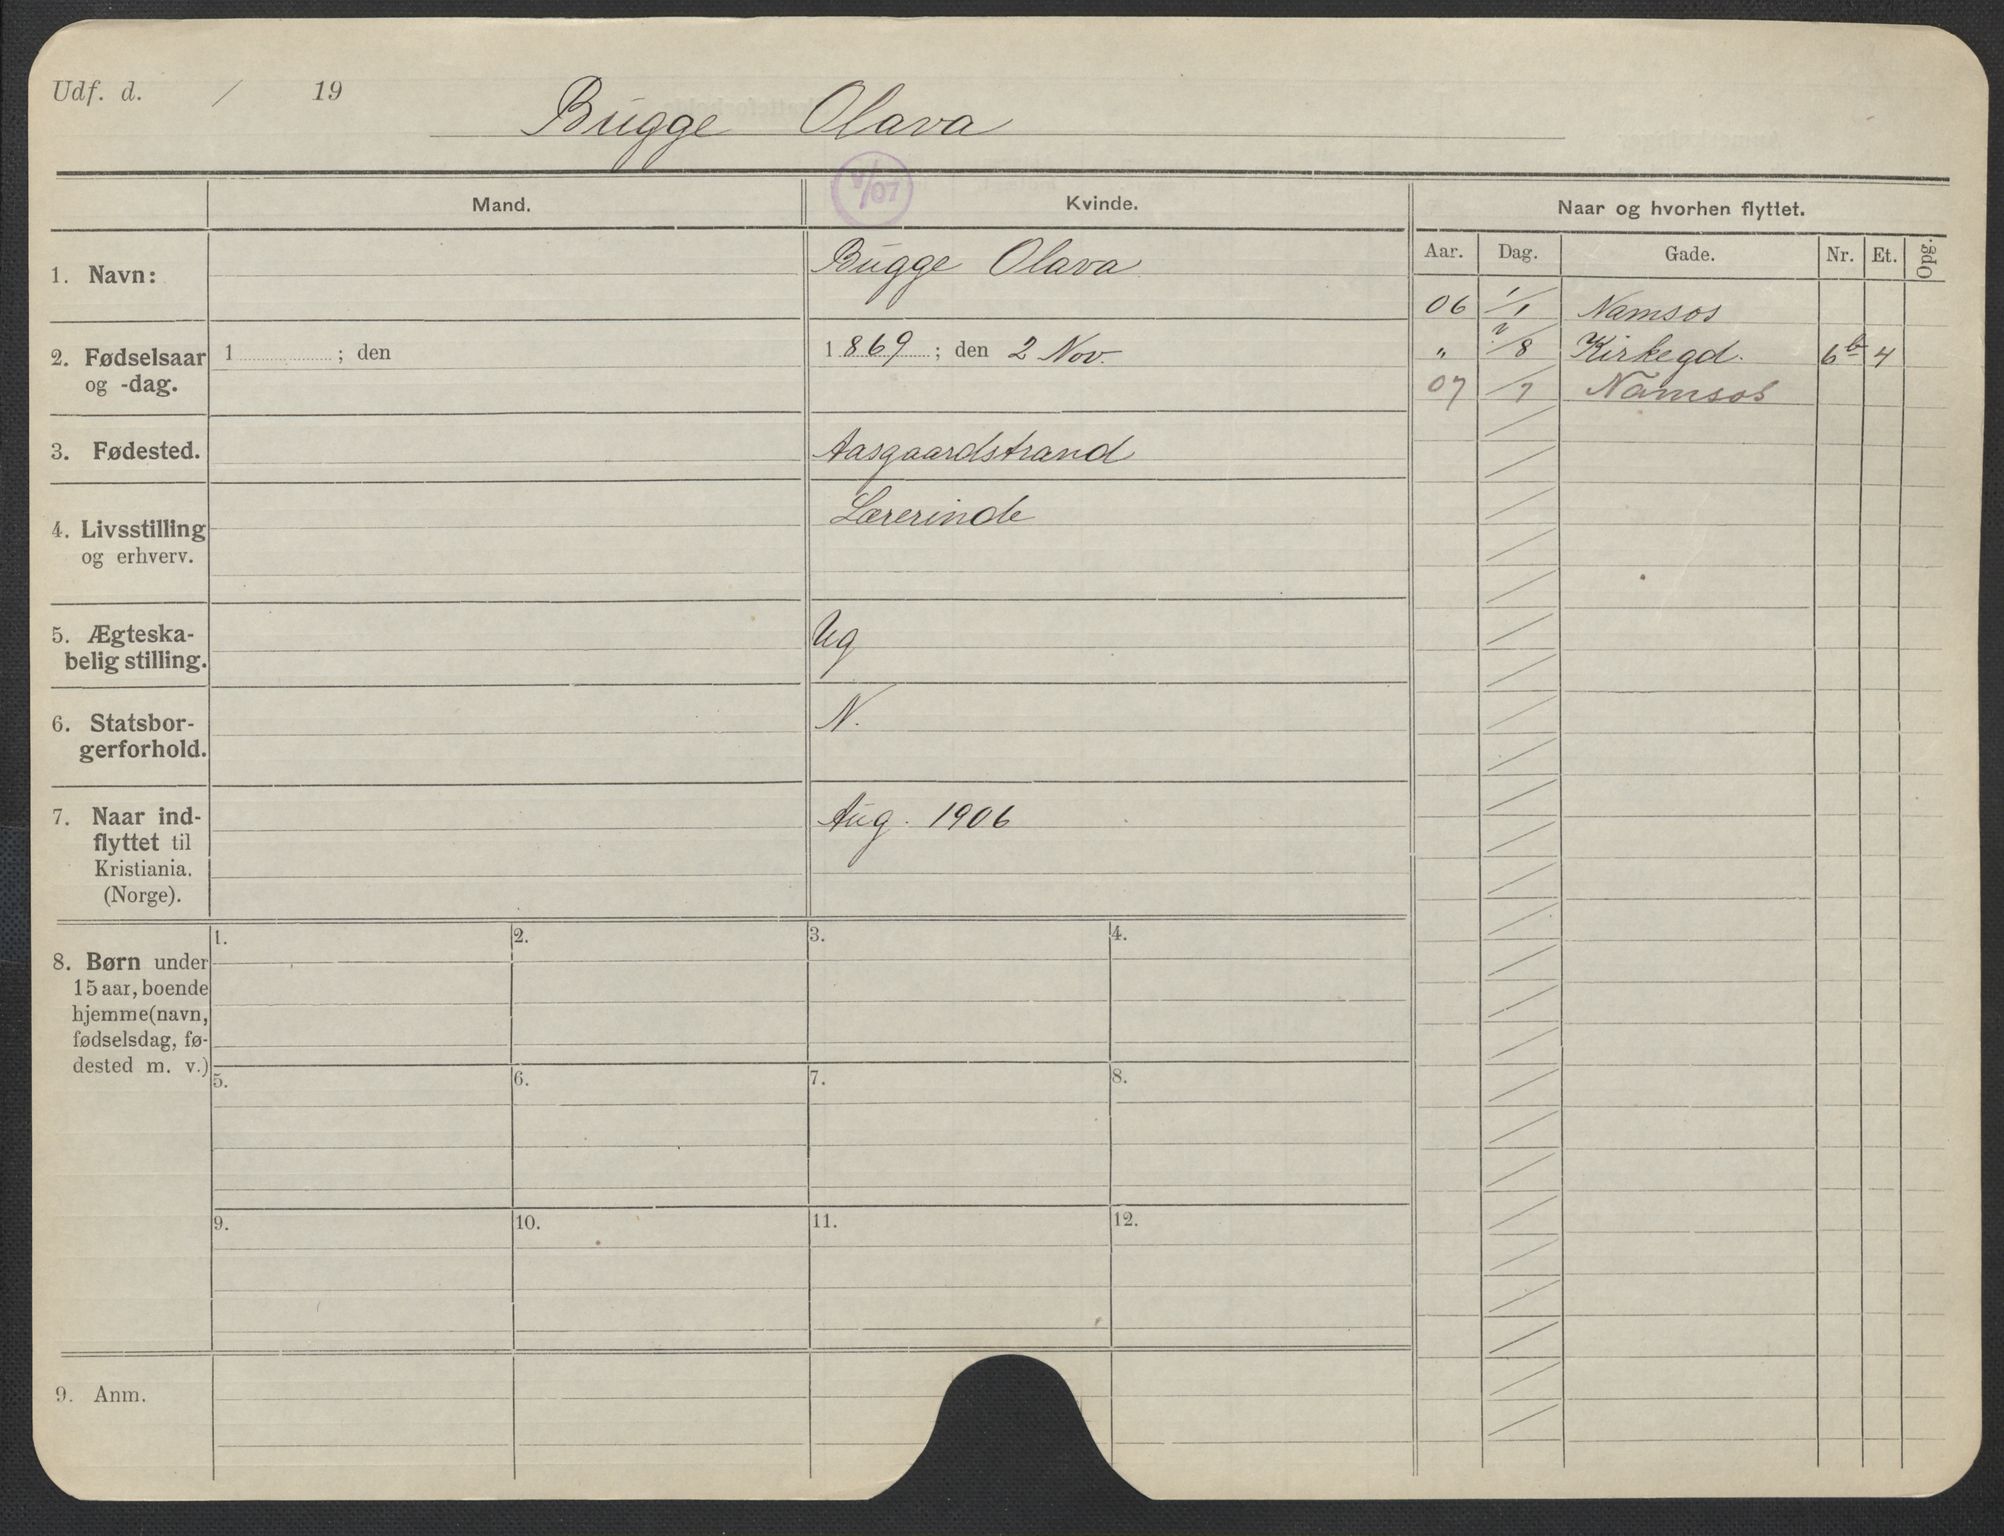 Udf. d. / 19
Bugge Olava
Mand.
Kvinde.
Naar og hvorhen flyttet.
Aar. Dag. Gade. Nr. Et. Opg.
1. Navn:
Bugge Olava
06 1/1 Namsos
2. Fødselsaar
og -dag.
1 ; den
1869 ; den 2 Nov.
" /8 Kirkegd. 6b 4
07 /7 Namsos
3. Fødested.
Aasgaardstrand
4. Livsstilling
og erhverv.
Lærerinde
5. Ægteska-
belig stilling.
Ug
6. Statsbor-
gerforhold.
N.
7. Naar ind-
flyttet til
Kristiania.
(Norge).
Aug. 1906
8. Børn under
15 aar, boende
hjemme (navn,
fødselsdag, fø-
dested m. v.)
1. 2. 3. 4.
5. 6. 7. 8.
9. 10. 11. 12.
9. Anm.